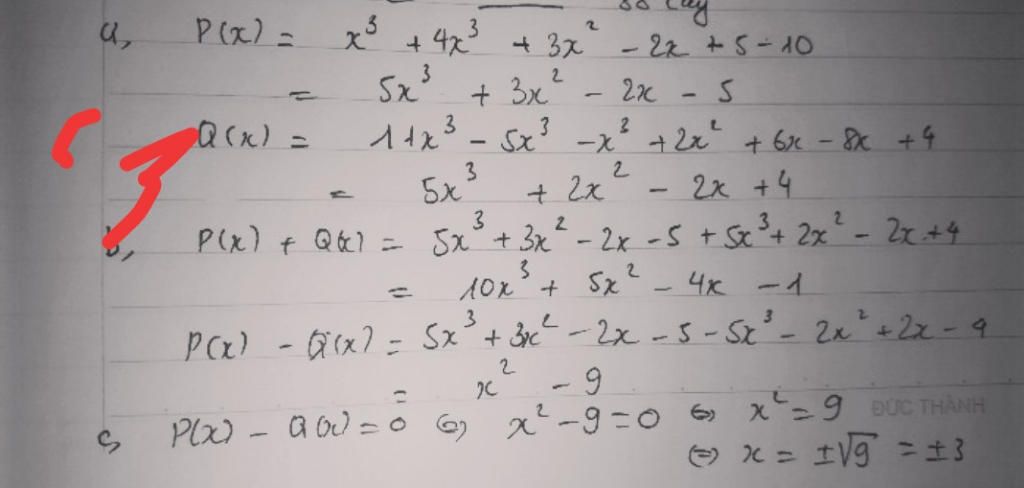 a, P(x) = x³ + 4x³ + 3x² - 2x + 5 - 10
= 5x³ + 3x² - 2x - 5
Q(x) = 11x³ - 5x³ - x³ + 2x² + 6x - 8x + 4
= 5x³ + 2x² - 2x + 4
b, P(x) + Q(x) = 5x³ + 3x² - 2x - 5 + 5x³ + 2x² - 2x + 4
= 10x³ + 5x² - 4x - 1
P(x) - Q(x) = 5x³ + 3x² - 2x - 5 - 5x³ - 2x² + 2x - 4
= x² - 9
ĐỨC THÀNH
c, P(x) - Q(x) = 0 ⇔ x² - 9 = 0 ⇔ x² = 9
⇔ x = ±√9 = ±3